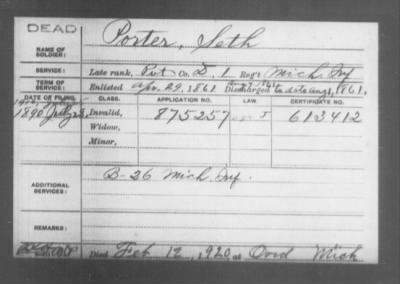 DEAD
NAME OF SOLDIER: Porter, Seth
SERVICE: Late rank, Pvt Co. D, 1 Reg't Mich. Inf
TERM OF SERVICE: Enlisted Apr. 29, 1861 Discharged Aug 1, 1861.
DATE OF FILING. CLASS. APPLICATION NO. LAW. CERTIFICATE NO.
1890 July 28, Invalid, 875257 J 613412
Widow,
Minor,
ADDITIONAL SERVICES: D-26 Mich. Inf.
REMARKS:
Died Feb 12, 1920, at Ovid Mich